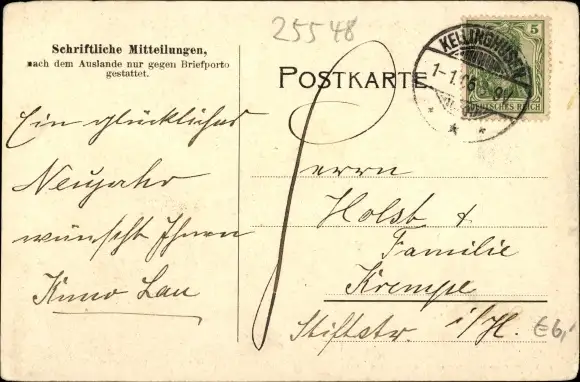 25548
Schriftliche Mitteilungen,
nach dem Auslande nur gegen Briefporto
gestattet.
POSTKARTE
KELLINGHUSEN
1-1.06
5
DEUTSCHES REICH
Ein glückliches
Neujahr
wünscht Ihnen
Kuno Lau
Herrn
Holst &
Familie
Krempe
i/H.
Stiftstr.
€6,-